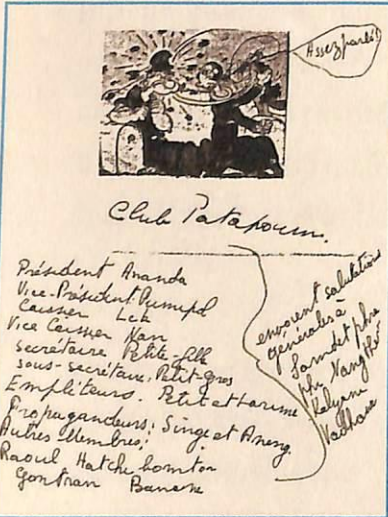 Assez parlé!!
Club Patapoum.
Président Ananda
Vice-Président Pumipol
Caissier Lek
Vice Caissier Nan
Secrétaire Petite-fille
sous-secrétaire, Petit-Gros
Empliteurs. Petit et
Propagandeurs; Singe et
Autres Membres;
Raoul Hatchebomton
Gontran Banane
envoient salutations
générales à
Somdet phra
phi Nang
Kalyani
Vadhana